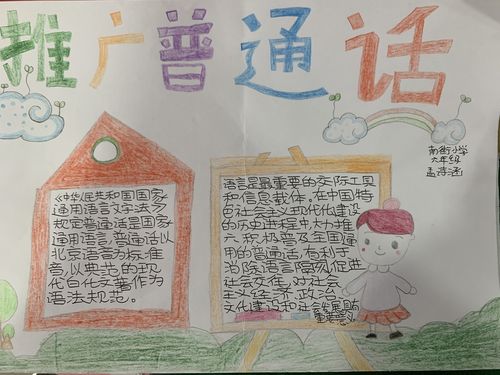 推广普通话
南街小学
六年级
孟诗涵
《中华人民共和国国家
通用语言文字法》
规定普通话是国家
通用语言,普通话以
北京语音为标准
音,以典范的现
代白化文著作为
语法规范。
语言是最重要的交际工具
和信息载体。在中国特
色社会主义现代化建设
的历史进程中,大力推
广积极普及全国通
用的普通话,有利于
消除语言隔阂,促进
社会交往,对社会
主义经济、政治
文化建设和社会发展具有
重要意义